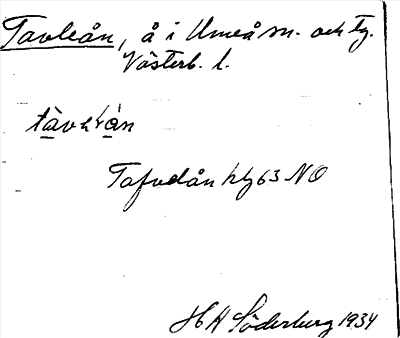 Tavleån, å i Umeå sn. och tg.
Västerb. l.
Tafvelån
63 NO
H A Söderberg 1934